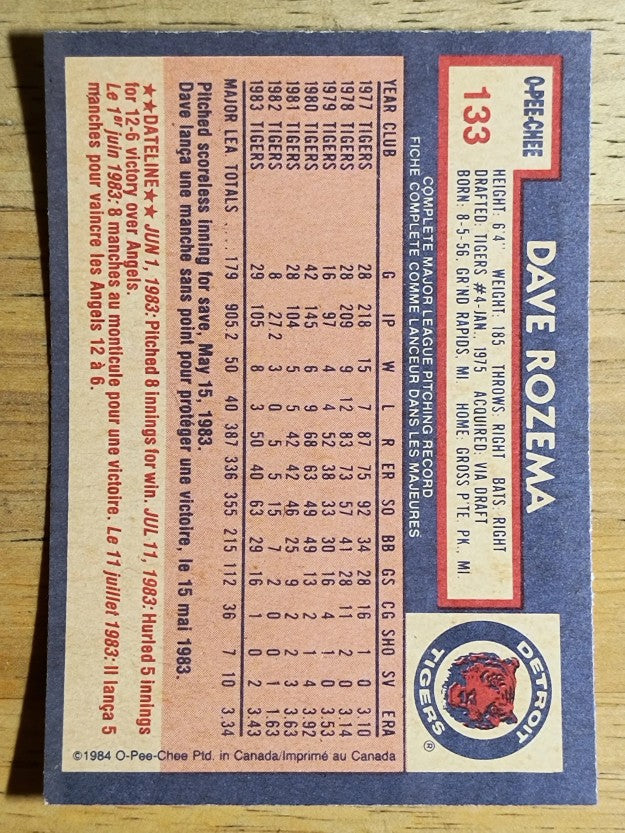 O-PEE-CHEE
133
DAVE ROZEMA
HEIGHT: 6'4" WEIGHT: 185 THROWS: RIGHT BATS: RIGHT
DRAFTED: TIGERS #4-JAN, 1975 ACQUIRED: VIA DRAFT
BORN: 8-5-56, GR'ND RAPIDS, MI. HOME: GROSS P'TE. PK., MI.
DETROIT
TIGERS
®
COMPLETE MAJOR LEAGUE PITCHING RECORD
FICHE COMPLETE COMME LANCEUR DANS LES MAJEURES
YEAR CLUB G IP W L R ER SO BB GS CG SHO SV ERA
1977 TIGERS 28 218 15 7 87 75 92 34 28 16 1 0 3.10
1978 TIGERS 28 209 9 12 83 73 57 41 28 11 2 0 3.14
1979 TIGERS 16 97 4 4 52 38 33 30 16 4 1 0 3.53
1980 TIGERS 42 145 6 9 68 63 49 49 13 2 1 4 3.92
1981 TIGERS 28 104 5 5 42 42 46 25 9 2 2 3 3.63
1982 TIGERS 8 27.2 3 0 5 5 15 7 2 0 0 1 1.63
1983 TIGERS 29 105 8 3 50 40 63 29 16 1 0 2 3.43
MAJOR LEA. TOTALS .... 179 905.2 50 40 387 336 355 215 112 36 7 10 3.34
Pitched scoreless inning for save, May 15, 1983.
Dave lança une manche sans point pour protéger une victoire, le 15 mai 1983.
★★DATELINE★★ JUN 1, 1983: Pitched 8 innings for win. JUL 11, 1983: Hurled 5 innings
for 12-6 victory over Angels.
Le 1er juin 1983: 8 manches au monticule pour une victoire. Le 11 juillet 1983: Il lança 5
manches pour vaincre les Angels 12 à 6.
©1984 O-Pee-Chee Ptd. in Canada/Imprimé au Canada